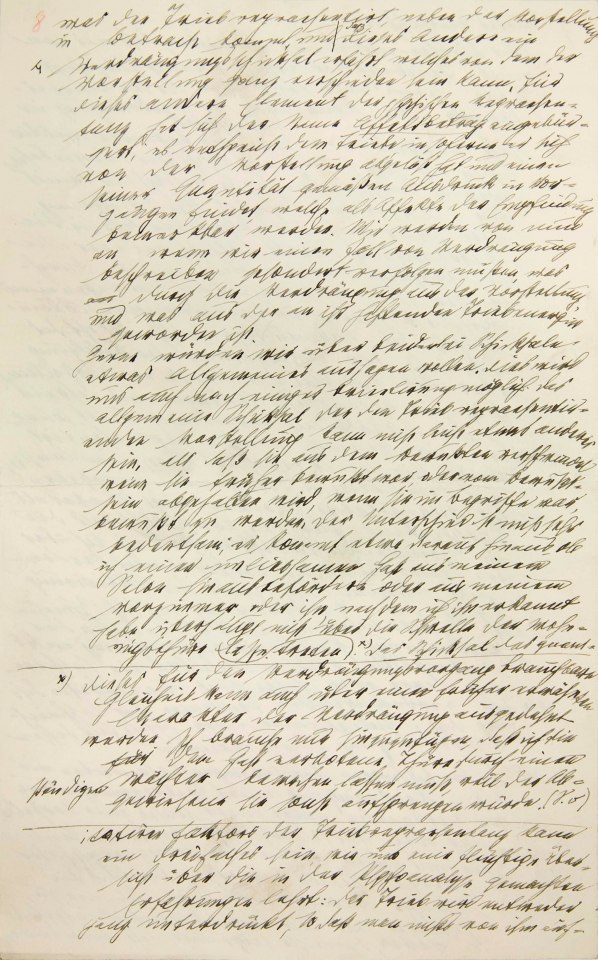 8 was den Trieb repraesentirt, neben der Vorstellung
in Betracht kommt, und daß dieses Andere ein
Verdrängungsschicksal erfährt welches von dem der
Vorstellung ganz verschieden sein kann. Für
dieses andere Element der psychischen Repraesen-
tanz hat sich der Name Affektbetrag eingebür-
gert; es entspricht dem Triebe in sofern er sich
von der Vorstellung abgelöst hat und einen
seiner Quantität gemäßen Ausdruck in Vor-
gängen findet welche als Affekte der Empfindung
bemerkbar werden. Wir werden von nun
an, wenn wir einen Fall von Verdrängung
beschreiben gesondert verfolgen müssen was
durch die Verdrängung aus der Vorstellung
und was aus der an ihr haftenden Triebenergie
geworden ist.
Gerne würden wir über beiderlei Schicksale
etwas allgemeines aussagen wollen. Dies wird
uns auch nach einiger Orientirung möglich. Das
allgemeine Schicksal der den Trieb repraesentir-
enden Vorstellung kann nicht leicht etwas anderes
sein, als daß sie aus dem Bewußten verschwindet
wenn sie früher bewußt war, oder vom Bewußt-
sein abgehalten wird, wenn sie im Begriffe war
bewußt zu werden. Der Unterschied ist nicht mehr
bedeutsam; er kommt etwa darauf hinaus ob
ich einen unliebsamen Gast aus meinem
Salon hinausbefördere oder aus meinem
Vorzimmer oder ihn nachdem ich ihn erkannt
habe überhaupt nicht über die Schwelle der Woh-
nungsthüre (lasse treten) x) Das Schicksal des quant-
x) Dieses für den Verdrängungsvorgang brauchbare
Gleichnis kann auch über einen früher erwähnten
Charakter der Verdrängung ausgedehnt
werden. Ich brauche nur hinzuzufügen, daß ich die
dem Gast verbotene Thüre durch einen
ständigen Wächter bewachen lassen muß, weil der Ab-
gewiesene sie sonst aufsprengen würde. (S. o)
itativen Faktors der Triebrepraesentanz kann
ein dreifaches sein, wie uns eine flüchtige Über-
sicht über die in der Psychoanalyse gemachten
Erfahrungen lehrt: Der Trieb wird entweder
ganz unterdrückt, so daß man nichts von ihm auf-